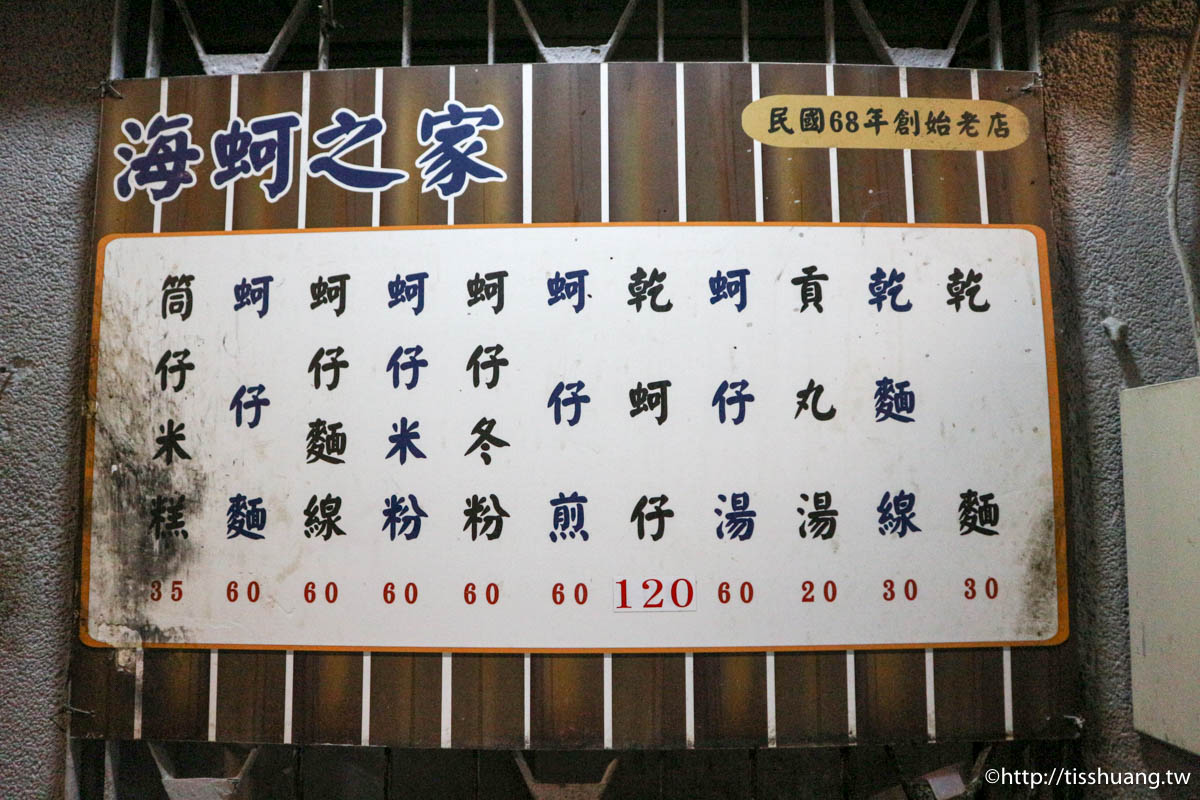 海蚵之家
民國68年創始老店
筒仔米糕 35
蚵仔麵 60
蚵仔麵線 60
蚵仔米粉 60
蚵仔冬粉 60
蚵仔煎 60
乾蚵仔 120
蚵仔湯 60
貢丸湯 20
乾麵線 30
乾麵 30
©http://tisshuang.tw